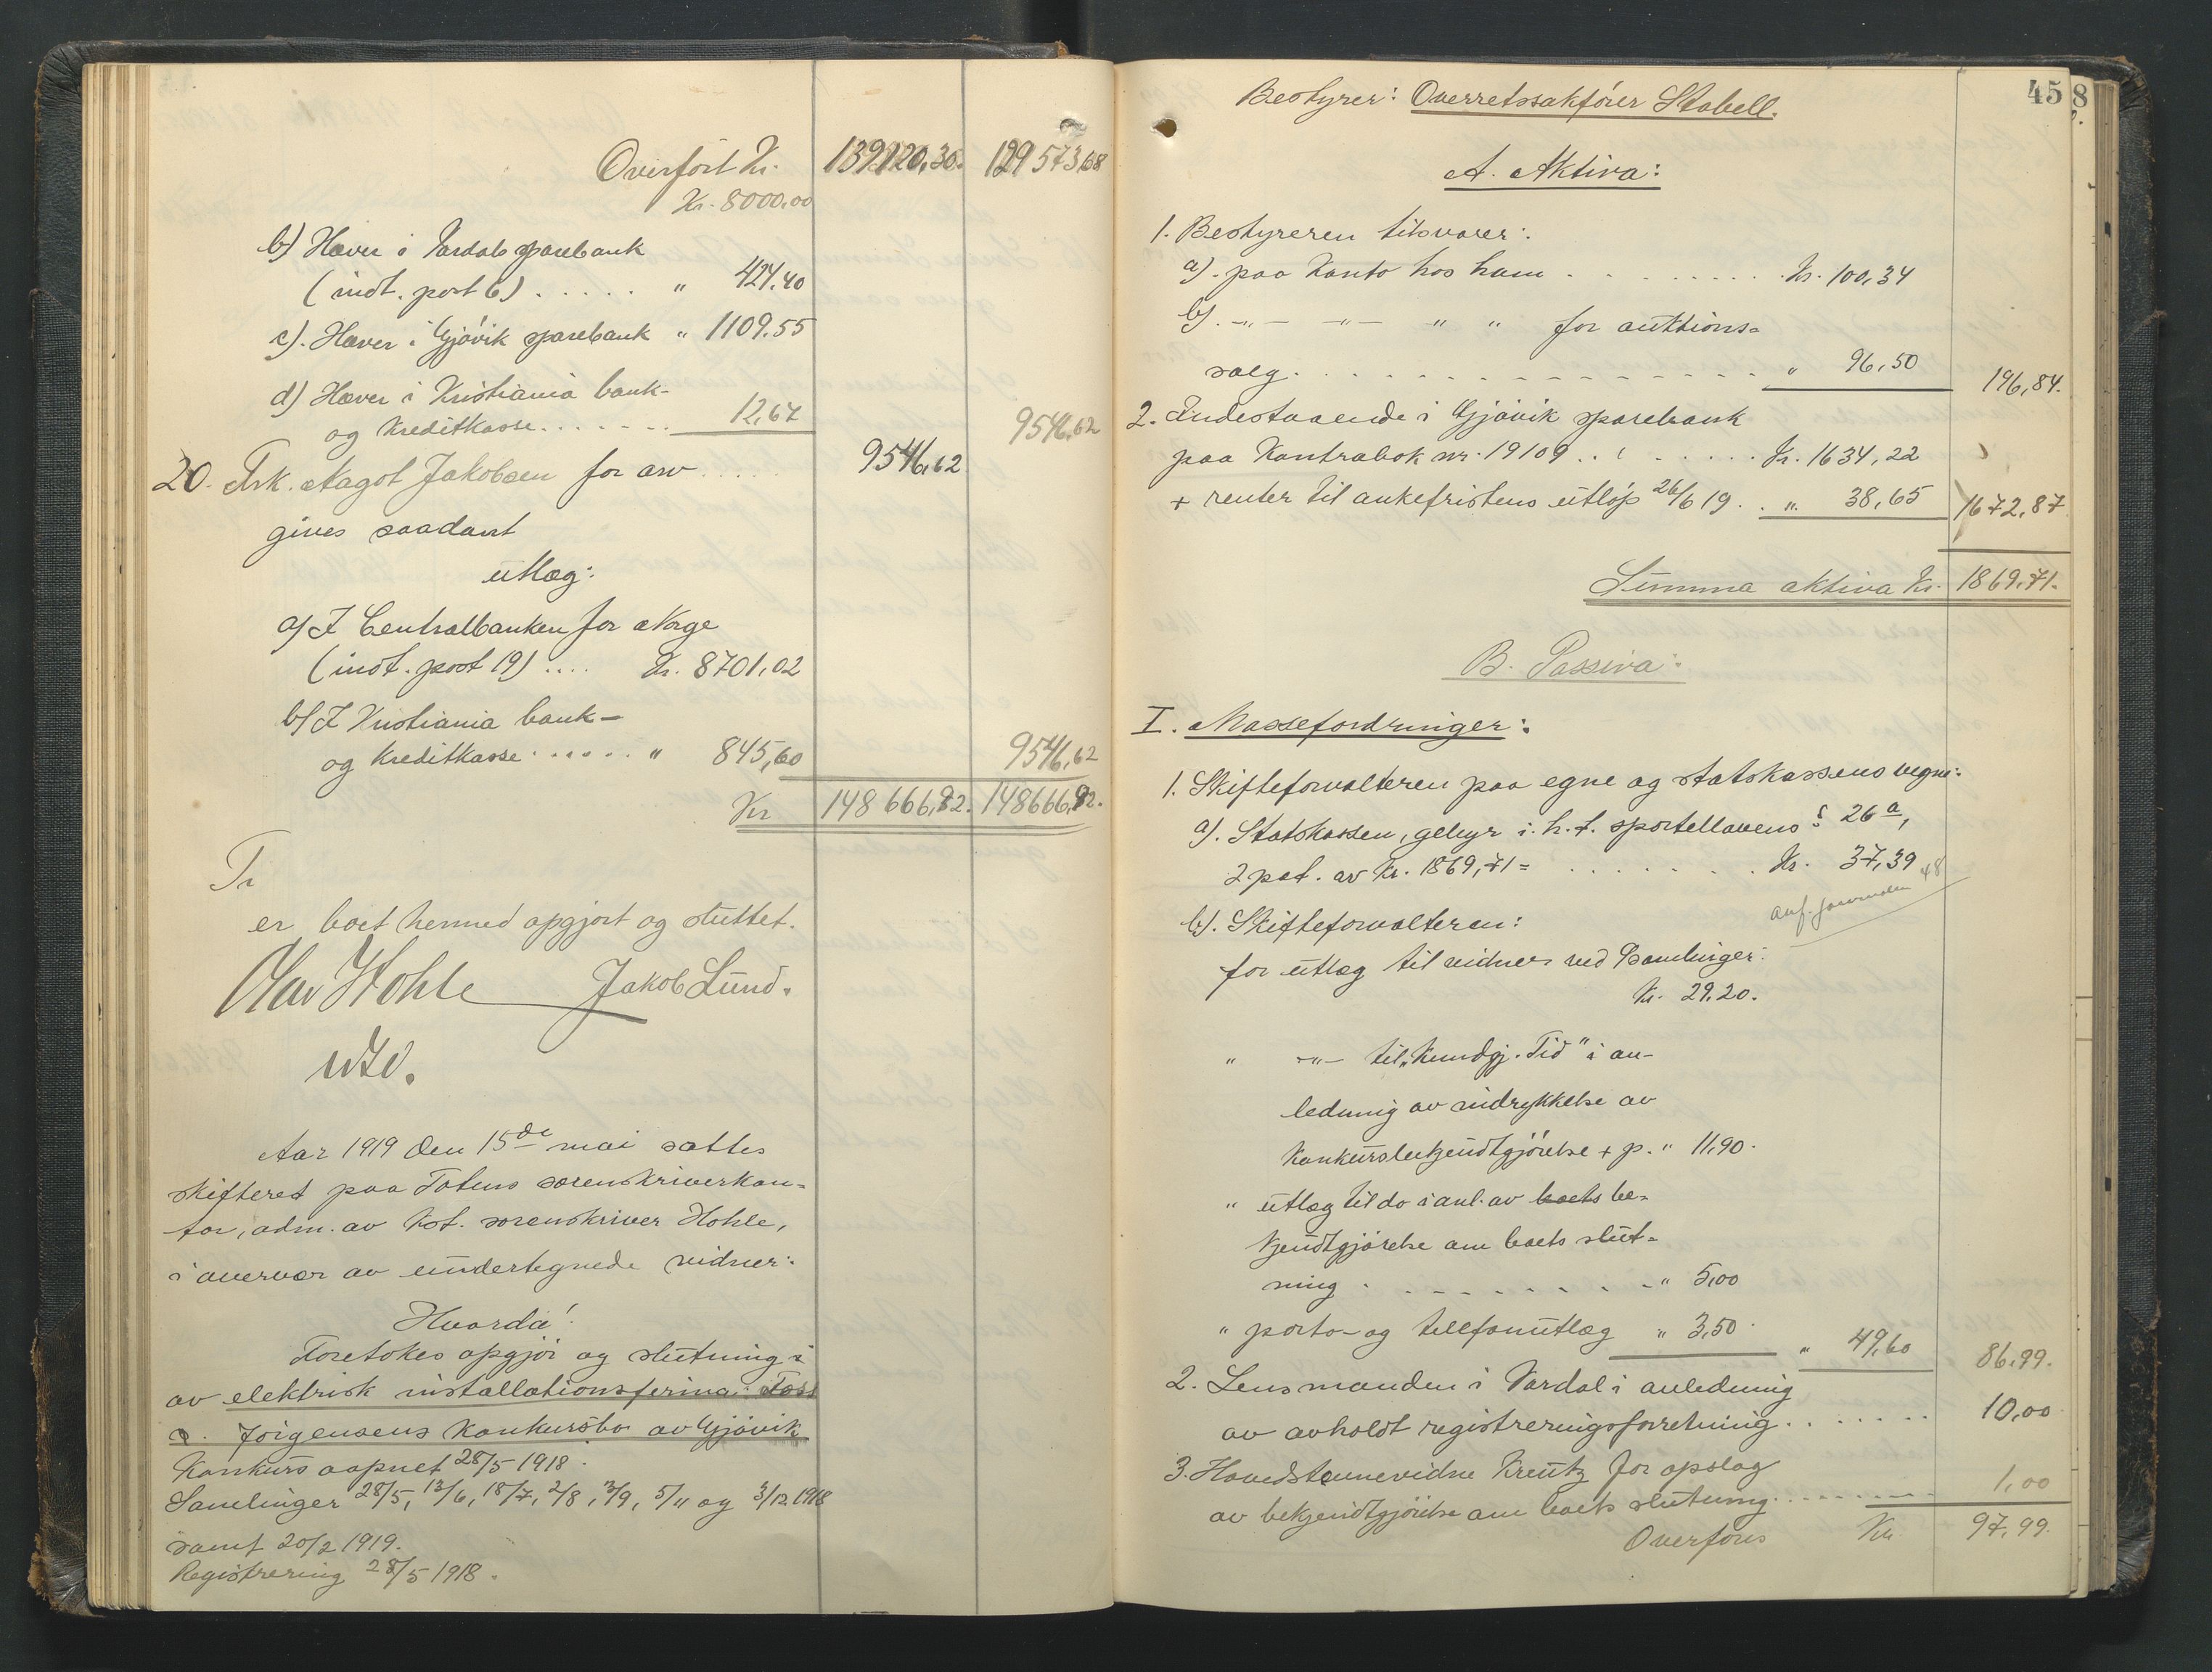 Overført Kr. 139120,30. 129573,68
Kr. 8000,00
b) Hæver i Vardals sparebank
(indt. post 6) . . . . . " 424,40
c). Hæver i Gjøvik sparebank " 1109.55
d) Hæver i Kristiania bank-
og Kreditkasse. . . . . . . 12,67 9546,62
20. Frk. Aagot Jakobsen for arv . . . . 9546,62
gives saadant
utlæg:
a) I Centralbanken for Norge
(indt. post 19) . . . . Kr. 8701,02
b) I Kristiania bank-
og Kreditkasse . . . . . . " 845,60 9546,62
Kr 148 666,92. 148666,92.
Ti
er boet hermed opgjort og sluttet.
Olav Hohle Jakob Lund.
Aar 1919 den 15de mai sattes
skifteret paa Totens sorenskriverkon-
tor, adm. av kst. sorenskriver Hohle,
i overvær av undertegnede vidner:
Hvorda!
Foretokes opgjør og slutning i
av elektrisk installationsfirma Foss
& Jörgensens Konkursbo av Gjøvik
Konkurs aapnet 28/5 1918.
Samlinger 28/5, 12/6, 18/7, 2/8, 3/9, 5/11 og 3/12 1918
samt 20/2 1919.
Registrering 28/5 1918.
458
Bestyrer: Overretssakfører Stabell.
A. Aktiva:
1. Bestyreren tilsvarer:
a). paa Konto hos ham . . . . . . . . . . Kr. 100,34
b). -"- -"- " " for auktions-
salg. . . . . . . . . . . . . . . " 96,50 196,84.
2. Indestaaende i Gjøvik sparebank
paa Kontrabok nr. 19109 . . . . . . . . Kr. 1634,22
+ renter til ankefristens utløp 26/6 19. . " 38,65 1672,87
Summa aktiva Kr. 1869.71.
B. Passiva:
I. Massefordringer:
1. Skifteforvalteren paa egne og statskassens vegne:
a). Statskassen, gebyr i. h. t. sportellovens § 26 a,
2 pct. av Kr. 1869,71 = . . . . . . . Kr. 37,39
48
anf. journalen
b). Skifteforvalteren:
for utlæg til vidner ved samlinger:
Kr. 29.20.
" -"- til "Kundgj. Tid" i an-
ledning av indrykkelse av
Konkursbekjendtgjørelse + p. " 11,90.
" utlæg til do i anl. av boets be-
kjendtgjørelse om boets slut-
ning . . . . . . . . . " 5,00
" porto- og tellefonutlæg " 3,50. " 49,60 86,99.
2. Lensmanden i Vardal i anledning
av avholdt registreringsforretning. . . . . . . 10,00
3. Hovedstevnevidne Kreutz for opslag
av bekjendtgjørelse om boets slutning. . . . . . . . 1,00
Overføres Kr. 97,99.